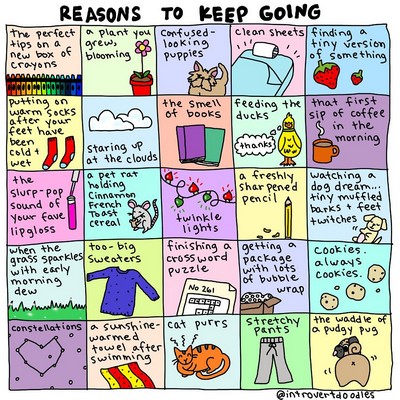 REASONS TO KEEP GOING
the perfect
tips on a
new box of
crayons
a plant you
grew,
blooming
confused-
looking
puppies
clean sheets
finding a
tiny version
of something
putting on
warm socks
after your
feet have
been
cold +
wet
staring up
at the clouds
the smell
of books
feeding the
ducks
thanks
that first
sip of coffee
in the
morning
the
slurp-pop
sound of
your fave
lipgloss
a pet rat
holding
cinnamon
french
toast
cereal
twinkle
lights
a freshly
sharpened
pencil
watching a
dog dream...
tiny muffled
barks + feet
twitches
when the
grass sparkles
with early
morning
dew
too-big
sweaters
finishing a
crossword
puzzle
No 261
getting a
package
with lots
of bubble
wrap
cookies.
always
cookies.
constellations
a sunshine-
warmed
towel after
swimming
cat purrs
stretchy
pants
the waddle of
a pudgy pug
@introvertdoodles